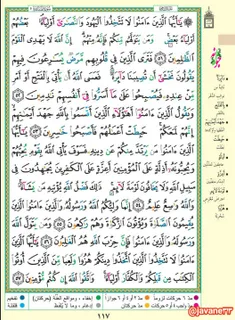 يَـٰٓأَيُّهَا ٱلَّذِينَ ءَامَنُوا۟ لَا تَتَّخِذُوا۟ ٱلْيَهُودَ وَٱلنَّصَـٰرَىٰٓ
أَوْلِيَآءَ بَعْضُهُمْ أَوْلِيَآءُ بَعْضٍ وَمَن يَتَوَلَّهُم مِّنكُمْ فَإِنَّهُۥ مِنْهُمْ إِنَّ ٱللَّهَ لَا يَهْدِى ٱلْقَوْمَ
ٱلظَّـٰلِمِينَ ﴿٥١﴾ فَتَرَى ٱلَّذِينَ فِى قُلُوبِهِم مَّرَضٌ يُسَـٰرِعُونَ فِيهِمْ
يَقُولُونَ نَخْشَىٰٓ أَن تُصِيبَنَا دَآئِرَةٌ فَعَسَى ٱللَّهُ أَن يَأْتِىَ بِٱلْفَتْحِ أَوْ أَمْرٍ
مِّنْ عِندِهِۦ فَيُصْبِحُوا۟ عَلَىٰ مَآ أَسَرُّوا۟ فِىٓ أَنفُسِهِمْ نَـٰدِمِينَ ﴿٥٢﴾
وَيَقُولُ ٱلَّذِينَ ءَامَنُوٓا۟ أَهَـٰٓؤُلَآءِ ٱلَّذِينَ أَقْسَمُوا۟ بِٱللَّهِ جَهْدَ أَيْمَـٰنِهِمْ
إِنَّهُمْ لَمَعَكُمْ حَبِطَتْ أَعْمَـٰلُهُمْ فَأَصْبَحُوا۟ خَـٰسِرِينَ ﴿٥٣﴾
يَـٰٓأَيُّهَا ٱلَّذِينَ ءَامَنُوا۟ مَن يَرْتَدَّ مِنكُمْ عَن دِينِهِۦ فَسَوْفَ يَأْتِى ٱللَّهُ بِقَوْمٍ يُحِبُّهُمْ
وَيُحِبُّونَهُۥٓ أَذِلَّةٍ عَلَى ٱلْمُؤْمِنِينَ أَعِزَّةٍ عَلَى ٱلْكَـٰفِرِينَ يُجَـٰهِدُونَ فِى
سَبِيلِ ٱللَّهِ وَلَا يَخَافُونَ لَوْمَةَ لَآئِمٍ ذَٰلِكَ فَضْلُ ٱللَّهِ يُؤْتِيهِ مَن يَشَآءُ
وَٱللَّهُ وَٰسِعٌ عَلِيمٌ ﴿٥٤﴾ إِنَّمَا وَلِيُّكُمُ ٱللَّهُ وَرَسُولُهُۥ وَٱلَّذِينَ ءَامَنُوا۟ ٱلَّذِينَ
يُقِيمُونَ ٱلصَّلَوٰةَ وَيُؤْتُونَ ٱلزَّكَوٰةَ وَهُمْ رَٰكِعُونَ ﴿٥٥﴾ وَمَن يَتَوَلَّ ٱللَّهَ
وَرَسُولَهُۥ وَٱلَّذِينَ ءَامَنُوا۟ فَإِنَّ حِزْبَ ٱللَّهِ هُمُ ٱلْغَـٰلِبُونَ ﴿٥٦﴾
يَـٰٓأَيُّهَا ٱلَّذِينَ ءَامَنُوا۟ لَا تَتَّخِذُوا۟ ٱلَّذِينَ ٱتَّخَذُوا۟ دِينَكُمْ هُزُوًا وَلَعِبًا مِّنَ ٱلَّذِينَ أُوتُوا۟
ٱلْكِتَـٰبَ مِن قَبْلِكُمْ وَٱلْكُفَّارَ أَوْلِيَآءَ وَٱتَّقُوا۟ ٱللَّهَ إِن كُنتُم مُّؤْمِنِينَ ﴿٥٧﴾
١١٧
@javane?r